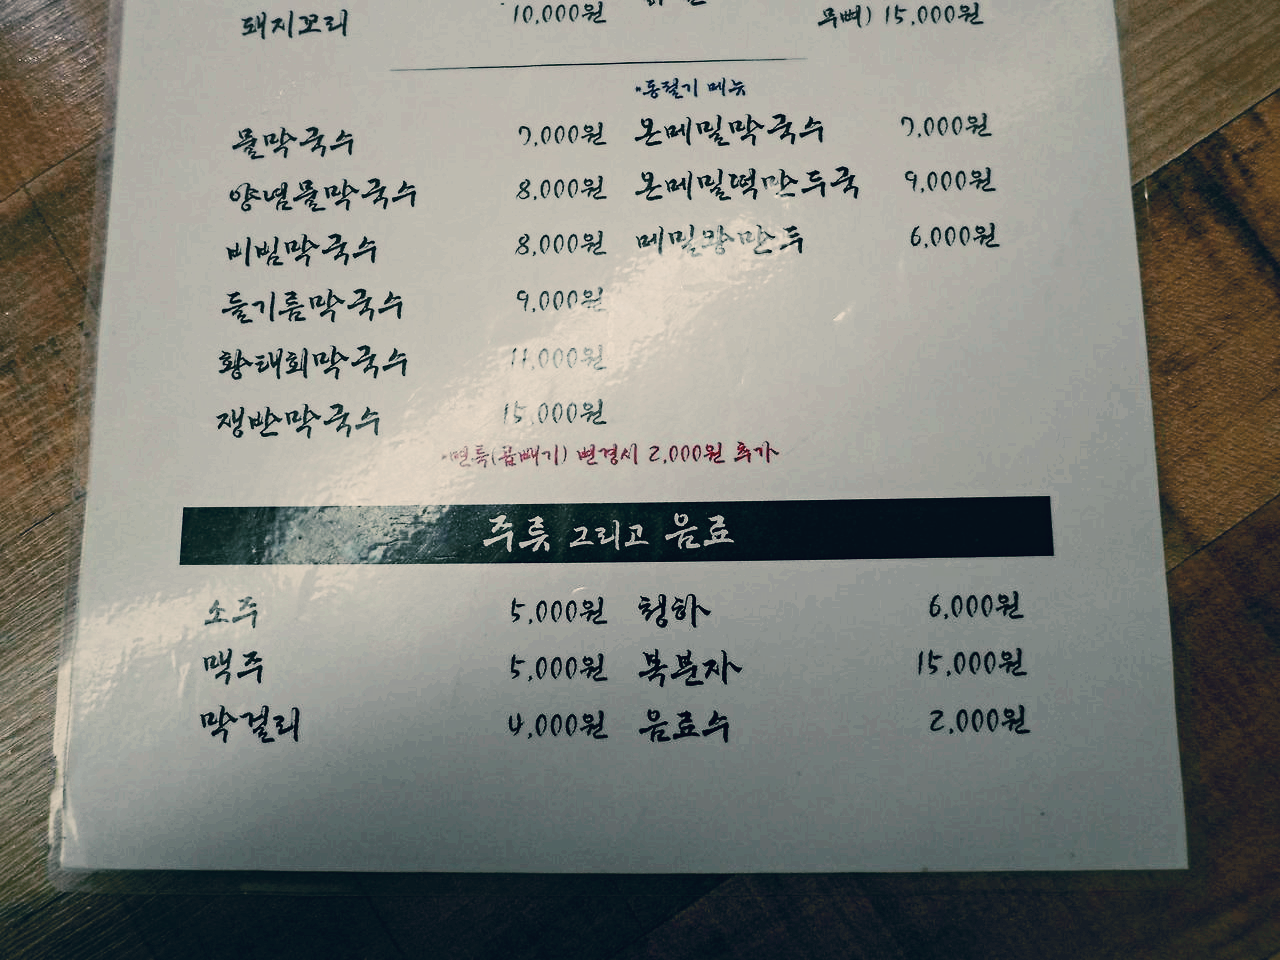 돼지꼬리 10,000원
무뼈) 15,000원
·동절기 메뉴
물막국수 7,000원 온메밀막국수 7,000원
양념물막국수 8,000원 온메밀떡만두국 9,000원
비빔막국수 8,000원 메밀왕만두 6,000원
들기름막국수 9,000원
황태회막국수 11,000원
쟁반막국수 15,000원
·면특(곱빼기) 변경시 2,000원 추가
주류 그리고 음료
소주 5,000원 청하 6,000원
맥주 5,000원 복분자 15,000원
막걸리 4,000원 음료수 2,000원